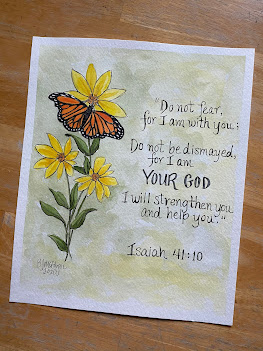 "Do not fear,
for I am with you;
Do not be dismayed,
for I am
YOUR GOD
I will strengthen you
and help you."
Isaiah 41:10